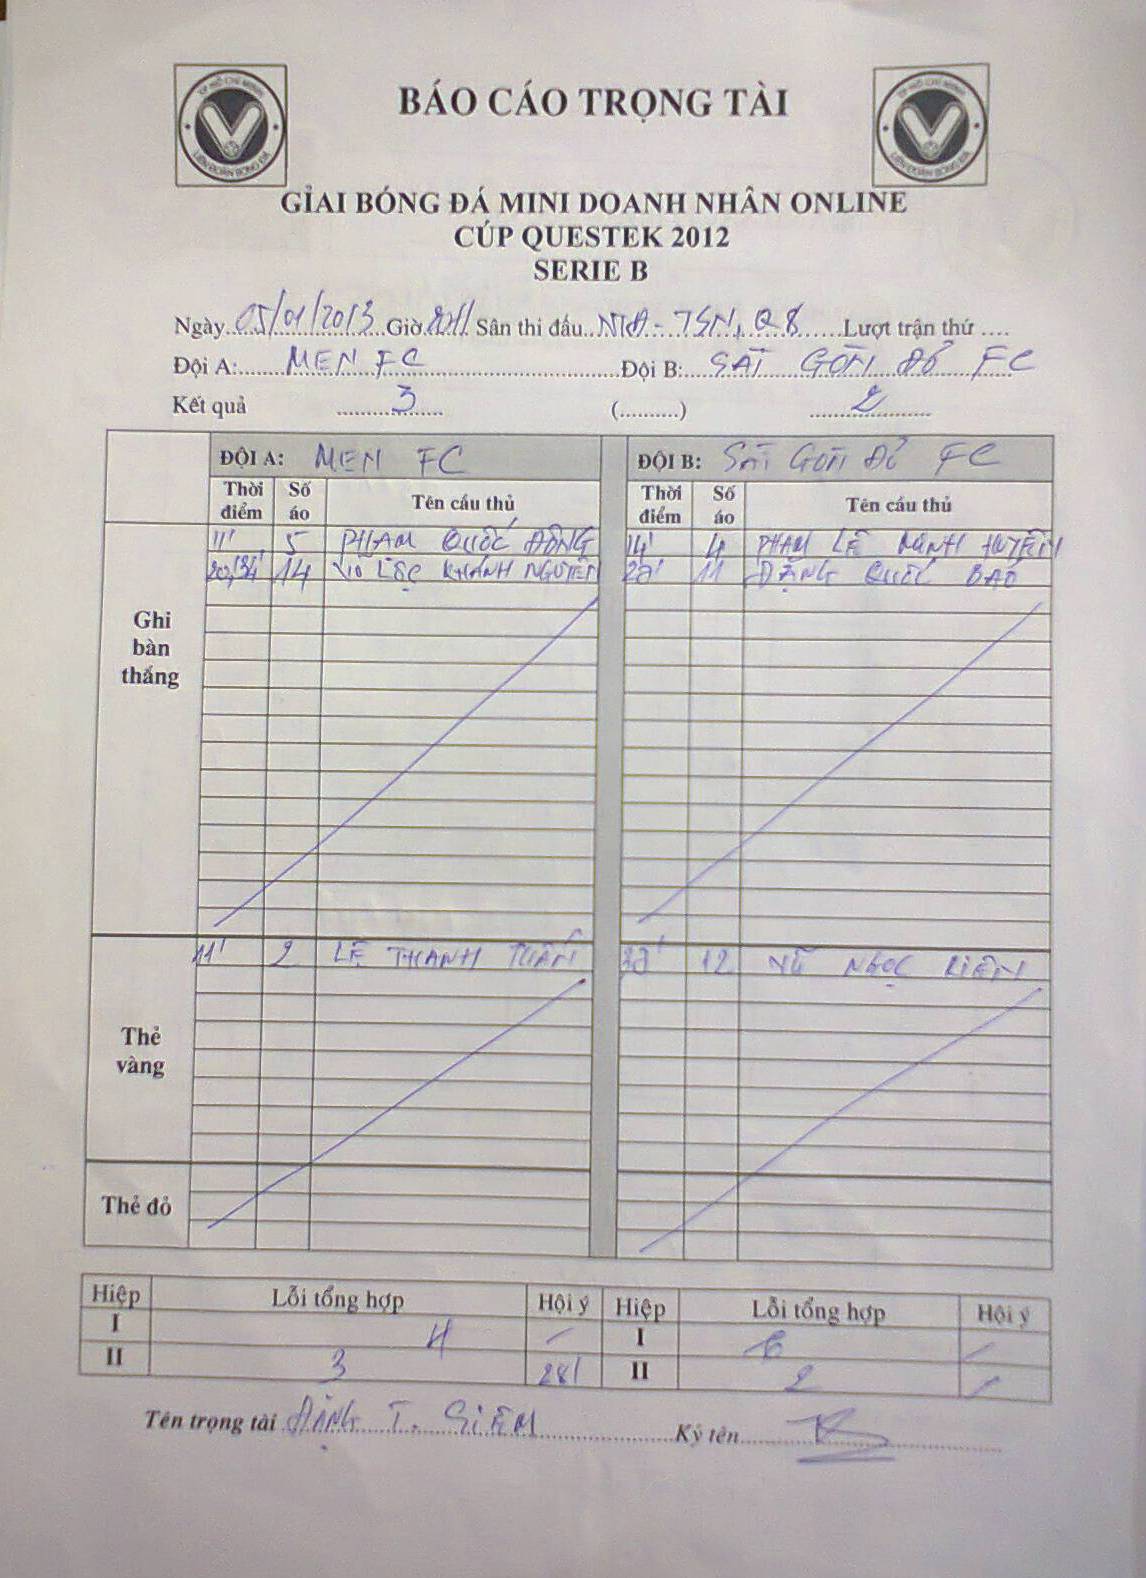 TP HỒ CHÍ MINH LIÊN ĐOÀN BÓNG ĐÁ
BÁO CÁO TRỌNG TÀI
TP HỒ CHÍ MINH LIÊN ĐOÀN BÓNG ĐÁ
GIẢI BÓNG ĐÁ MINI DOANH NHÂN ONLINE
CÚP QUESTEK 2012
SERIE B
Ngày 05/01/2013 Giờ Sân thi đấu TSN, Q8 Lượt trận thứ ....
Đội A: MEN FC Đội B: SÀI GÒN ĐỎ FC
Kết quả 3 (..........) 2
ĐỘI A: MEN FC ĐỘI B: SÀI GÒN ĐỎ FC
Thời điểm Số áo Tên cầu thủ Thời điểm Số áo Tên cầu thủ
Ghi bàn thắng
11' 5 PHẠM QUỐC ĐÔNG 14' 4 PHẠM LÊ MINH HUYỀN
20',34' 14 LỘC KHÁNH NGUYÊN 11 ĐẶNG QUỐC BẢO
Thẻ vàng
11' 2 LÊ THANH TUẤN 12 VŨ NGỌC LIÊN
Thẻ đỏ
Hiệp Lỗi tổng hợp Hội ý Hiệp Lỗi tổng hợp Hội ý
I 4 I
II 3 28' II 2
Tên trọng tài ĐẶNG T. GIÊM Ký tên